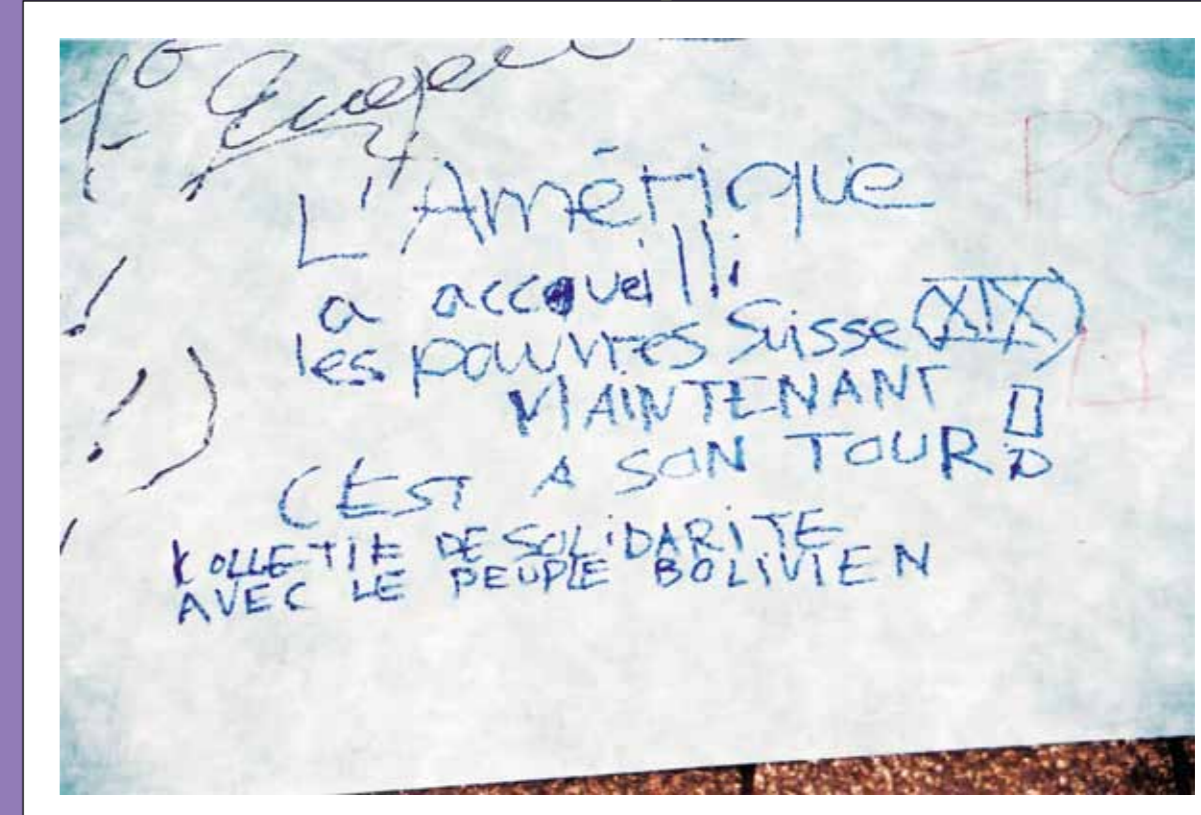 L'Amérique
a accoueilli
les pauvres Suisse (XIX)
MAINTENANT
C'EST A SON TOUR
KOLLETIF DE SOLIDARITE
AVEC LE PEUPLE BOLIVIEN
PO
LI